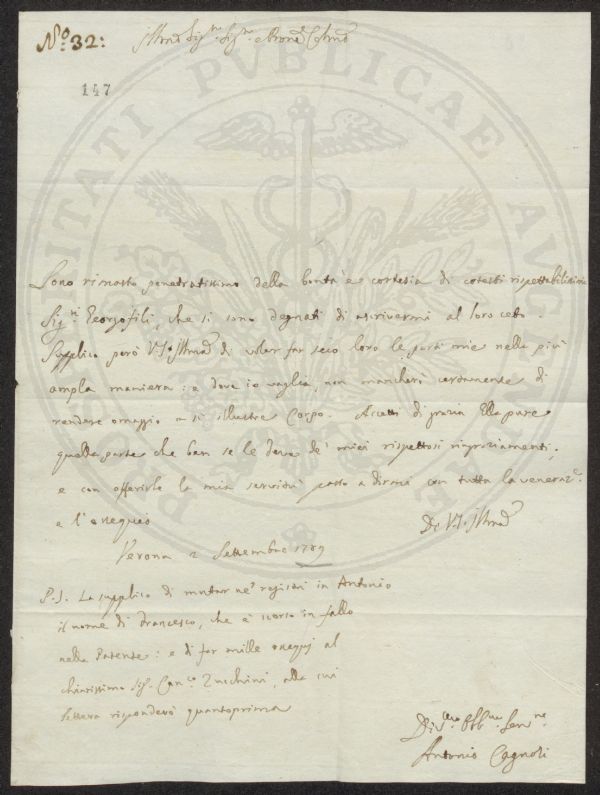 No: 32:
Illmo Sigr. Sigr. Prone Colmo
147
PROSPERITATI PUBLICAE AUGENDAE
Sono rimasto penetratissimo della bontà e cortesia di cotesti rispettabilissimi
Sigri Georgofili, che si sono degnati di ascrivermi al loro ceto.
Supplico però V. S. Illma di voler far seco loro le parti mie nella più
ampla maniera: e dove io vaglia, non mancherò certamente di
rendere omaggio a sì illustre Corpo. Accetti di grazia Ella pure
quella parte che ben se le deve de' miei rispettosi ringraziamenti;
e con offerirle la mia servitù passo a dirmi con tutta la veneraze.
e l'ossequio
Di V. S. Illma
Verona 2 Settembre 1789
P.S. La supplico di mutar ne' registri in Antonio
il nome di Francesco, che è scorso in fallo
nella Patente: e di far mille ossequj al
chiarissimo Sigr. Canco Zucchini, alla cui
lettera risponderò quantoprima
Obbmo Serre
Antonio Cagnoli